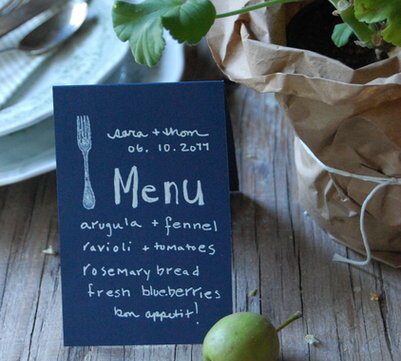 sara + thom
06.10.2011
Menu
arugula + fennel
ravioli + tomatoes
rosemary bread
fresh blueberries
bon appetit!